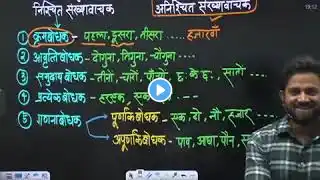 निश्चित संख्यावाचक
अनिश्चित संख्यावाचक
① क्रमबोधक - पहला, दूसरा, तीसरा .... हजारवाँ
② आवृत्तिबोधक - दोगुना, तिगुना, चौगुना
③ समुदायबोधक - तीनों, चारों, पाँचों, छः के छः, सातों ....
④ प्रत्येकबोधक - हरएक,
⑤ गणनाबोधक
पूर्णांकबोधक - एक, दो, नौ, हजार ....
अपूर्णांकबोधक - पाव, आधा, पौन,